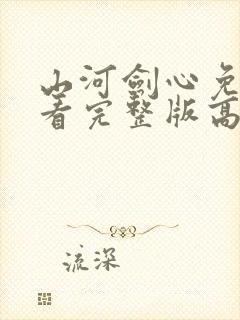 山河劍心免
看完整版高
流深